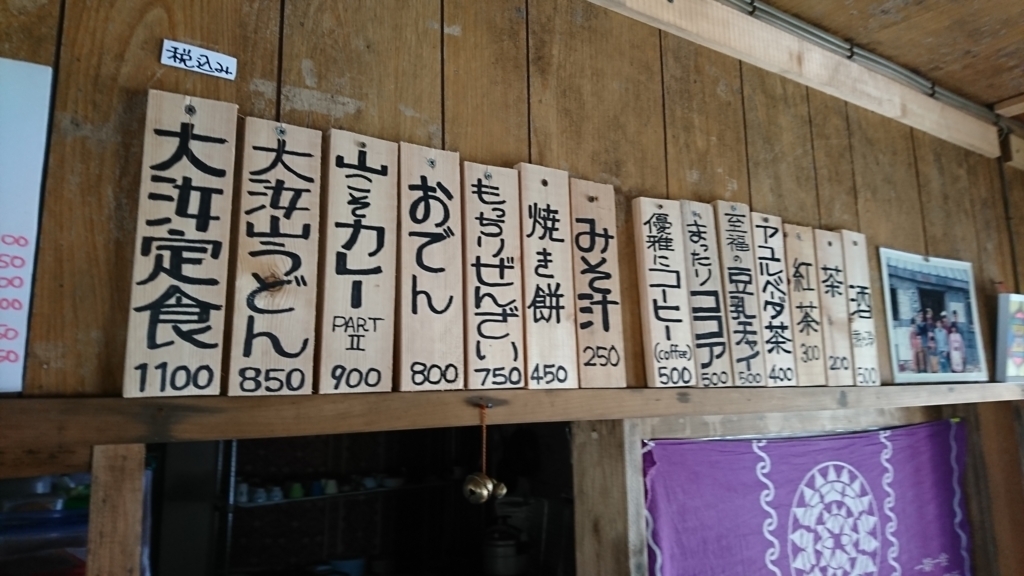 税込み
大汝定食
1100
大汝山うどん
850
山こそカレー
PART
II
900
おでん
800
もっちりぜんざい
750
焼き餅
450
みそ汁
250
優雅にコーヒー
(coffee)
500
まったりココア
500
至福の豆乳チャイ
500
アユルベーダ茶
400
紅茶
300
茶
200
酒
500
00
50
00
00
50
50